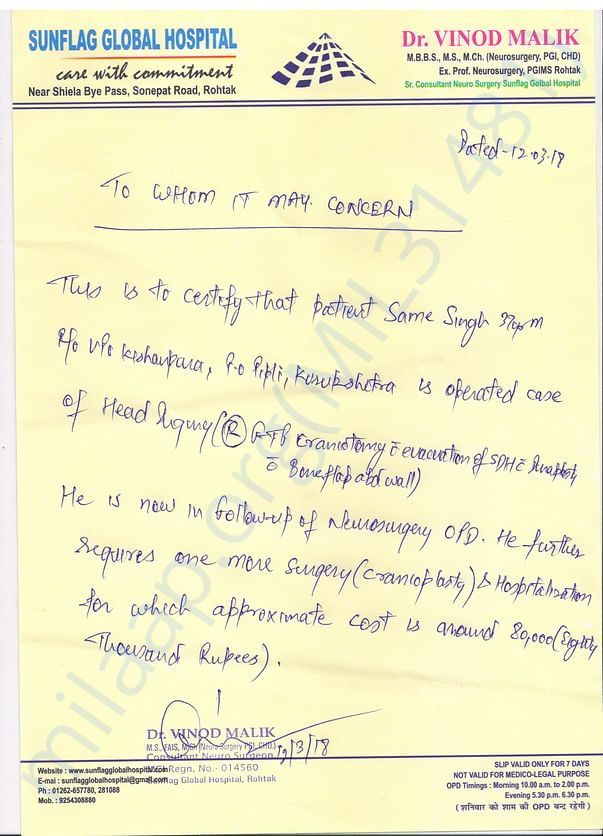 SUNFLAG GLOBAL HOSPITAL
care with commitment
Near Shiela Bye Pass, Sonepat Road, Rohtak
Dr. VINOD MALIK
M.B.B.S., M.S., M.Ch. (Neurosurgery, PGI, CHD)
Ex. Prof. Neurosurgery, PGIMS Rohtak
Sr. Consultant Neuro Surgery Sunflag Golbal Hospital
Dated - 12.03.18
TO WHOM IT MAY CONCERN
This is to certify that patient Same Singh
R/o VPO Kishanpara, P.o Pipli, Kurukshetra is operated case
of Head Injury (R FTP craniotomy c̄ evacuation of SDH c̄
c̄ Bone flap abd wall)
He is now in follow-up of Neurosurgery OPD. He further
requires one more surgery (cranioplasty) & Hospitalization
for which approximate cost is around 80,000 (Eighty
Thousand Rupees).
Dr. VINOD MALIK
M.S., FAIS, M.Ch (Neuro-Surgery PGI, CHD.)
Consultant Neuro Surgeon
12/3/18
Regn. No.- 014560
Sunflag Global Hospital, Rohtak
Website : www.sunflagglobalhospital.com
E-mai : sunflagglobalhospital@gmail.com
Ph : 01262-657780, 281088
Mob. : 9254308880
SLIP VALID ONLY FOR 7 DAYS
NOT VALID FOR MEDICO-LEGAL PURPOSE
OPD Timings : Morning 10.00 a.m. to 2.00 p.m.
Evening 5.30 p.m. 6.30 p.m.
(शनिवार को शाम की OPD बन्द रहेगी)
milaap.org(MIL3148